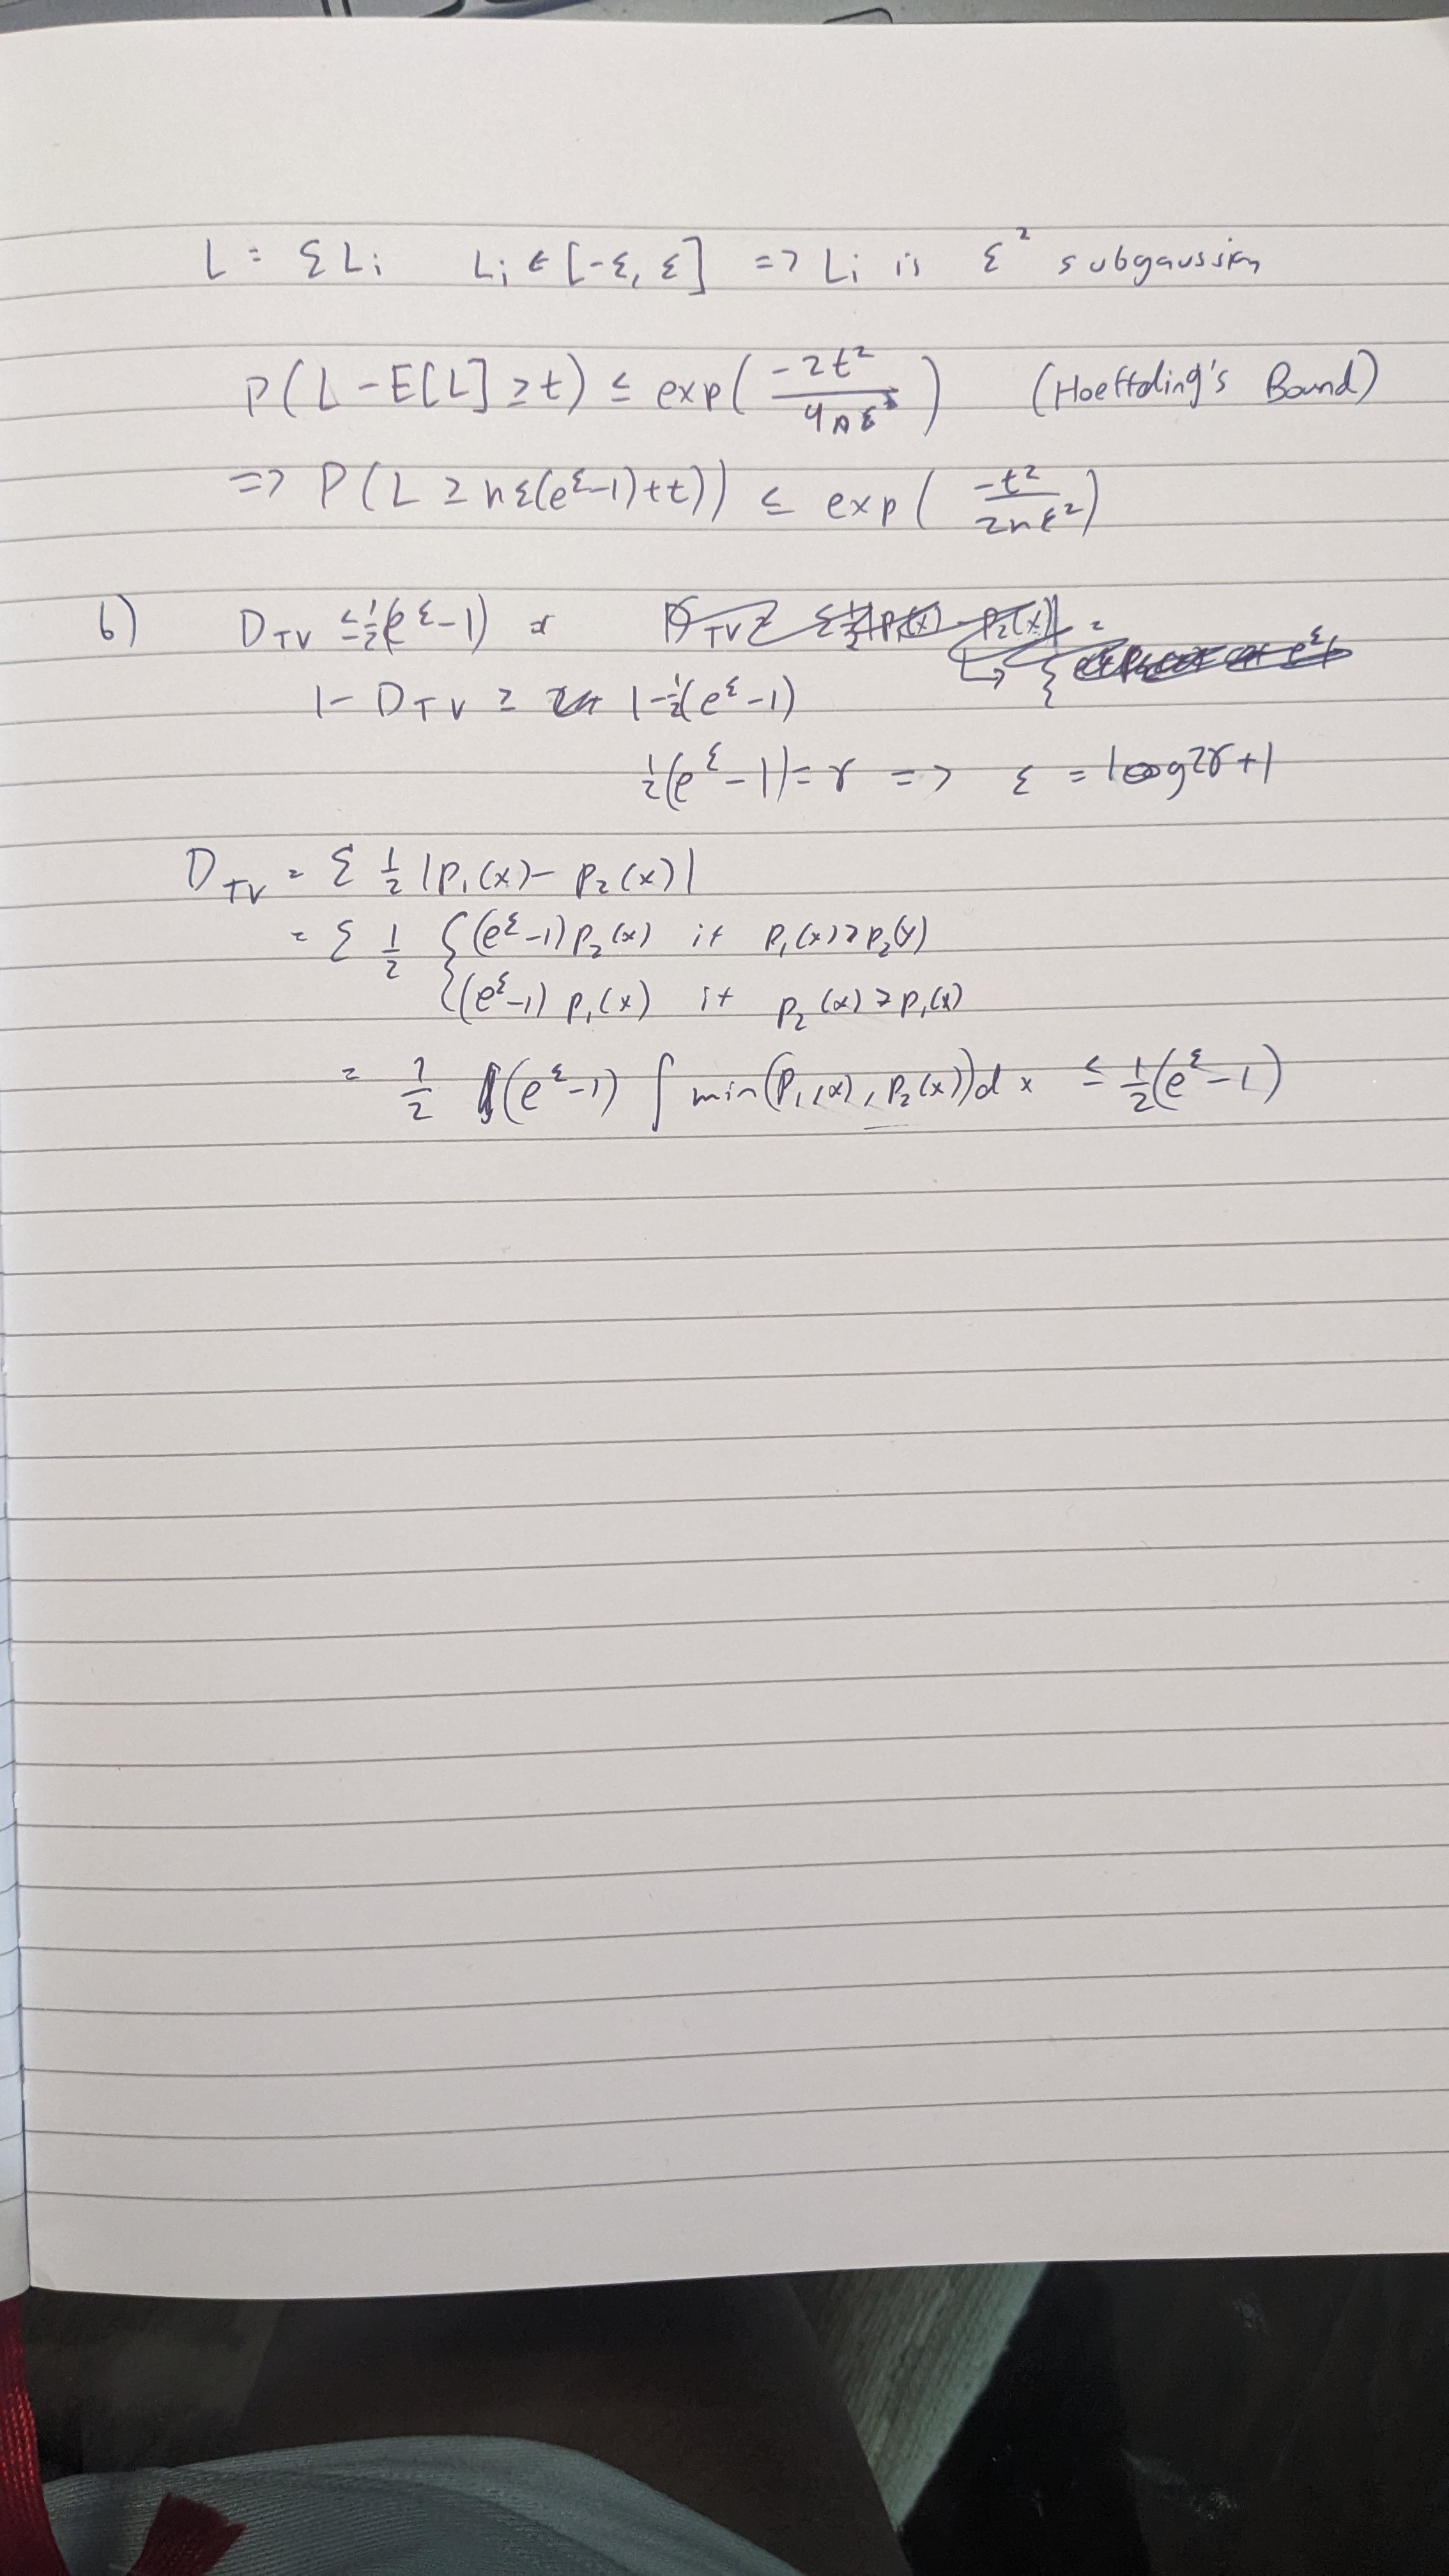 L = Σ Li   Li ∈ [-ε, ε] => Li is ε² subgaussian
P(L - E[L] ≥ t) ≤ exp( -2t² / 4nε² )   (Hoeffding's Bound)
=> P(L ≥ nε(e^ε-1)+t)) ≤ exp( -t² / 2nε² )
6) D_TV ≤ ½(e^ε-1)
1 - D_TV ≥ 1-½(e^ε-1)
½(e^ε-1) = γ => ε = log2γ+1
D_TV = Σ ½ |p₁(x) - p₂(x)|
= Σ ½ { (e^ε-1) p₂(x) if p₁(x) ≥ p₂(x)
{ (e^ε-1) p₁(x) if p₂(x) ≥ p₁(x)
= ½ (e^ε-1) ∫ min(p₁(x), p₂(x))dx ≤ ½(e^ε-1)